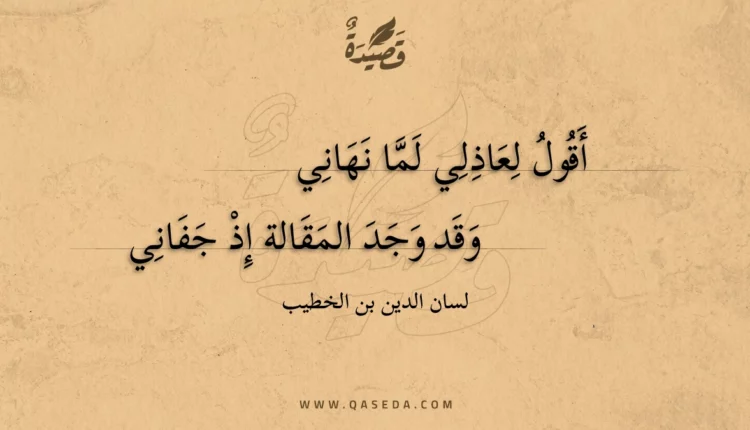 قَصِيْدَةٌ
أَقُولُ لِعَاذِلِي لَمَّا نَهَانِي
وَقَد وَجَدَ المَقَالة إِذْ جَفَانِي
لسان الدين بن الخطيب
WWW.QASEDA.COM